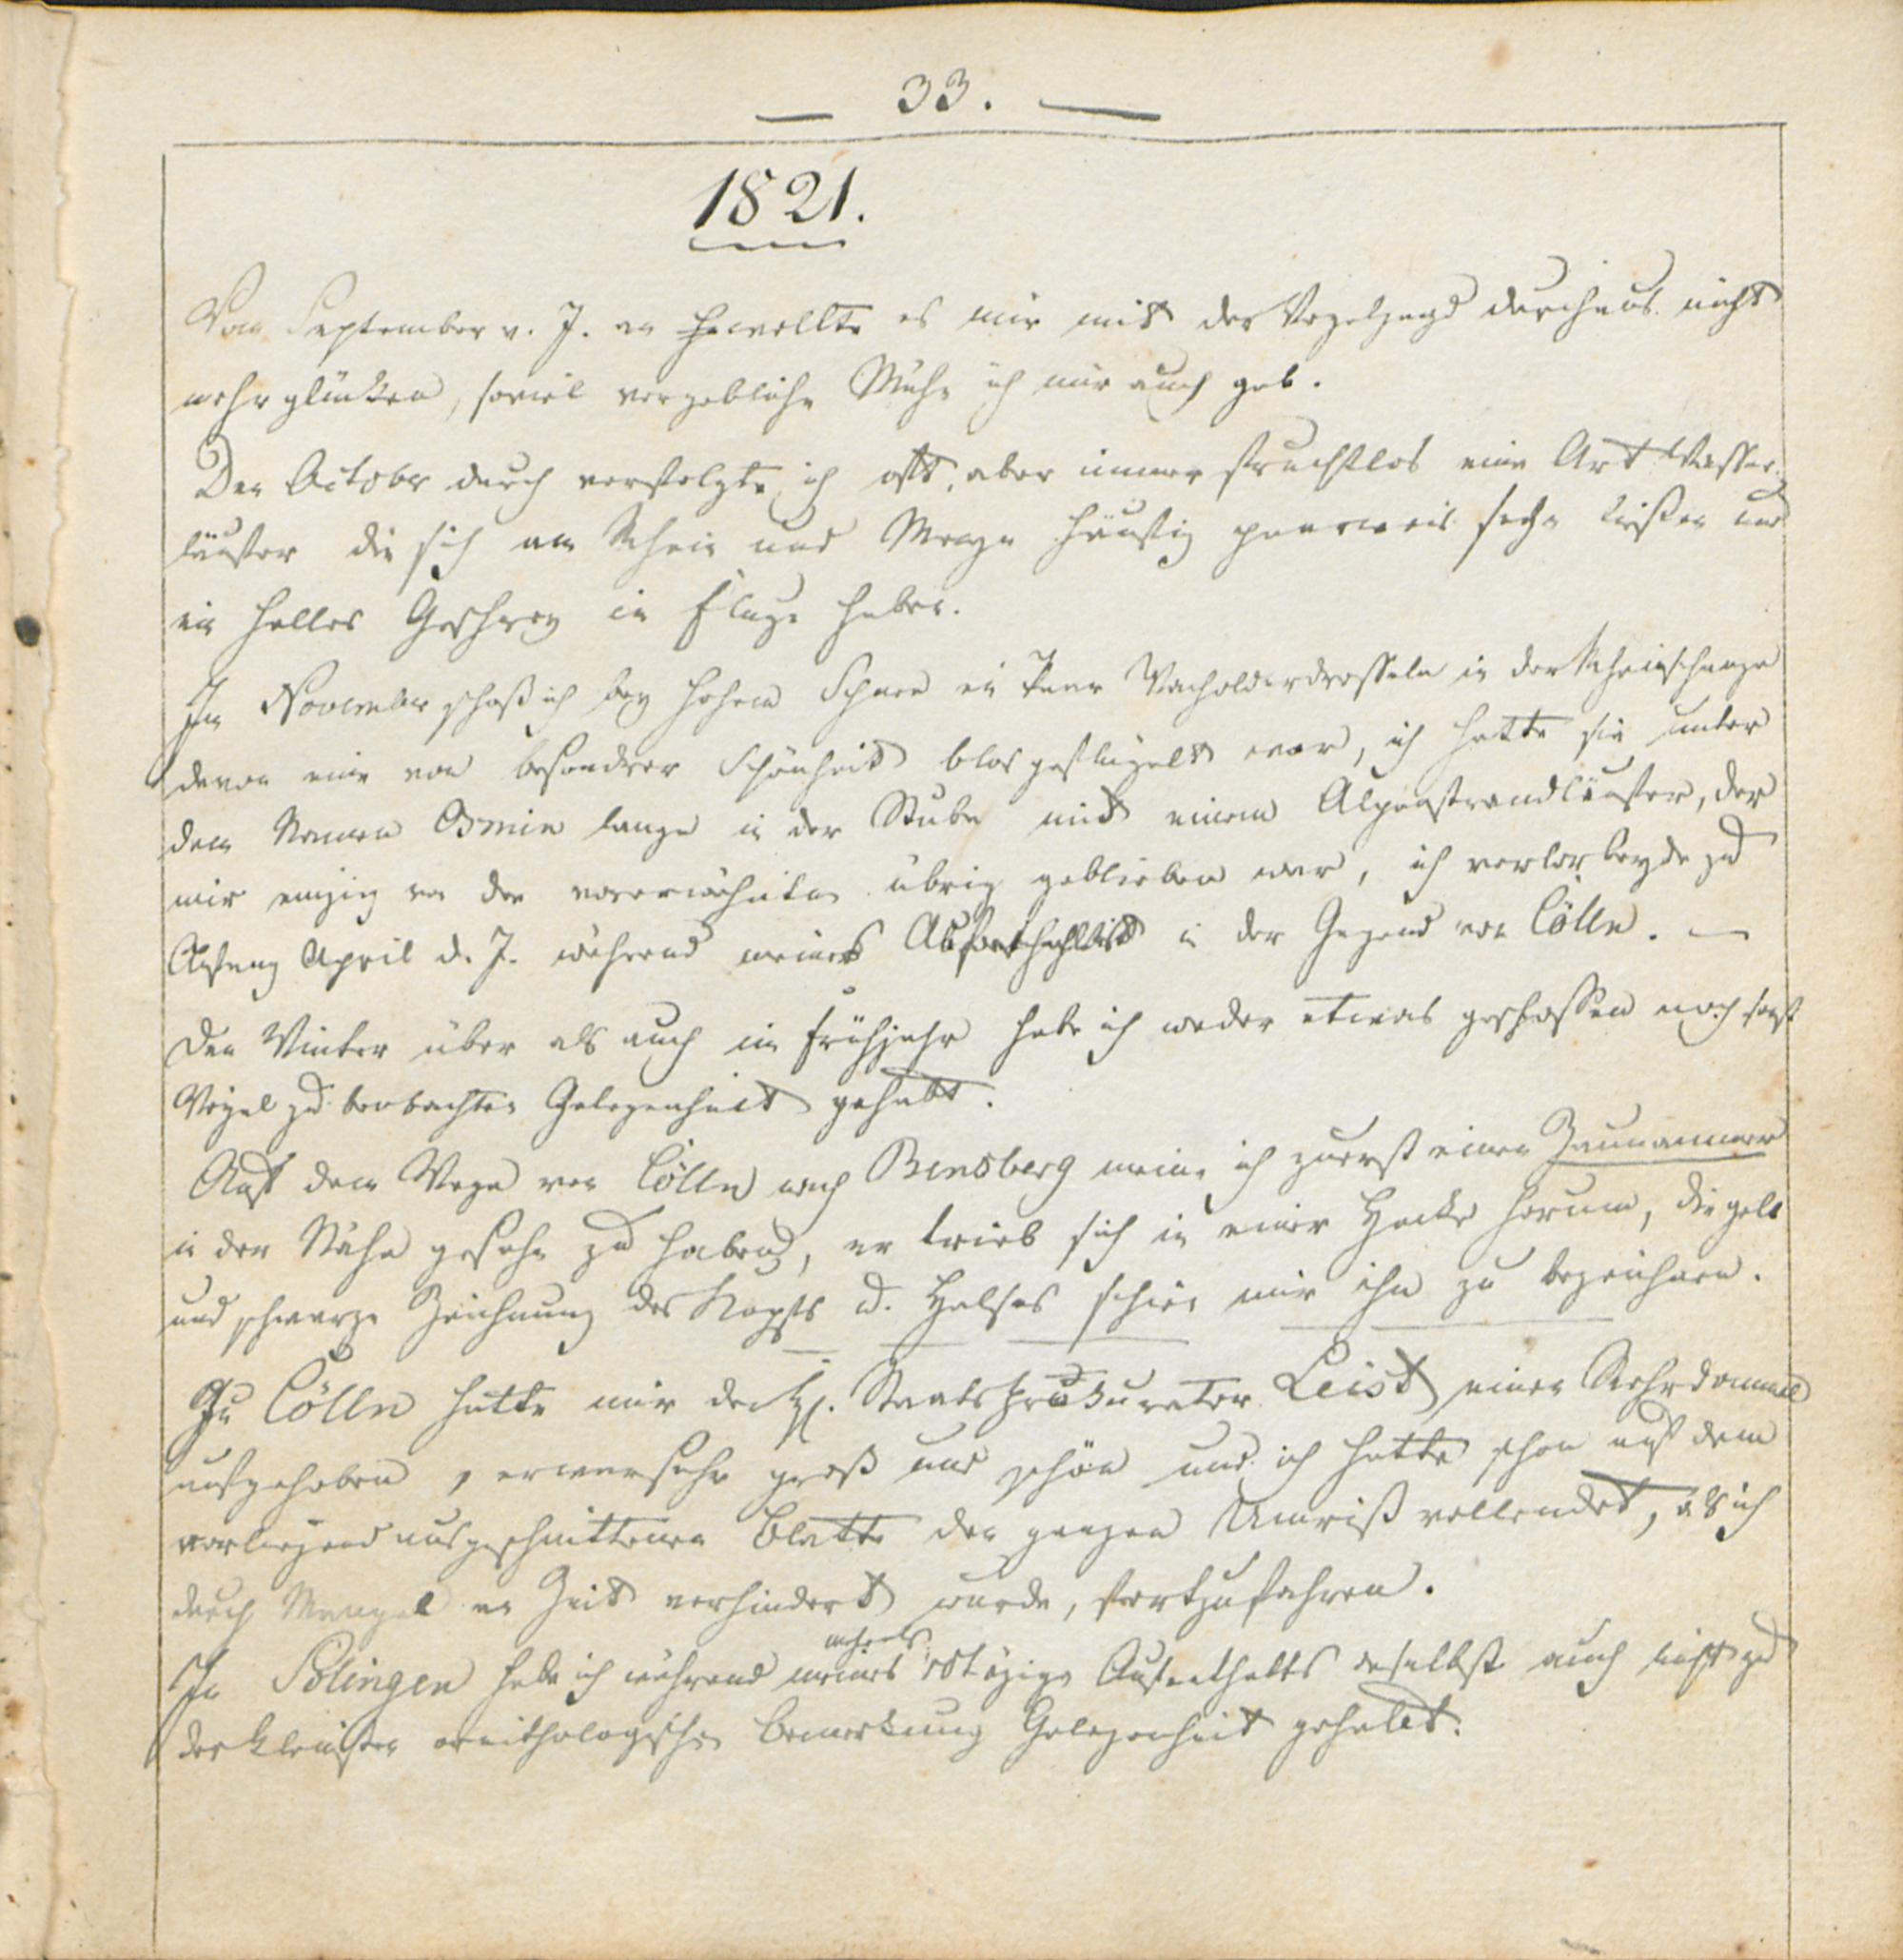 — 33. —
1821.
Vom September v. J. an wollte es mir mit der Vogeljagd durchaus nicht
mehr glücken, soviel vergebliche Mühe ich mir auch gab.
Den October durch verfolgte ich oft, aber immer fruchtlos eine Art Wasser-
läufer die sich am Rhein und häufig paarweis sehn ließen und
ein helles Geschrey im Fluge haben.
Im November schoß ich bey hohem Schnee ein Paar Wacholderdrosseln in der Rheinschanze
davon eine von besondrer Schönheit blos geflügelt war, ich hatte sie unter
dem Namen Osmin lange in der Stube mit einem Alpenstrandläufer, der
mir einzig von den vorerwähnten übrig geblieben war, ich verlor beyde zu
Anfang April d. J. während meines in der Gegend von Cölln. —
Den Winter über als auch im Frühjahr habe ich weder etwas geschossen noch sonst
Vögel zu beobachten Gelegenheit gehabt.
Auf dem Wege von Cölln nach Bensberg meine ich zuerst einen Zaunammer
in der Nähe gesehn zu haben, er trieb sich in einer Hecke herum, die gelb
und schwarze Zeichnung des Kopfs u. Halses schien mir ihn zu bezeichnen.
Zu Cölln hatte mir der H. Staatsprokurator Leist einen Rohrdommel
aufgehoben, er war sehr groß und schön und ich hatte schon auf dem
vorliegend ausgeschnittenen Blatte den ganzen Umriß vollendet, als ich
durch Mangel an Zeit verhindert wurde, fortzufahren.
In Solingen habe ich während meines mehrals Aufenthalts daselbst auch nicht zu
der kleinsten ornithologischen Bemerkung Gelegenheit gehabt.